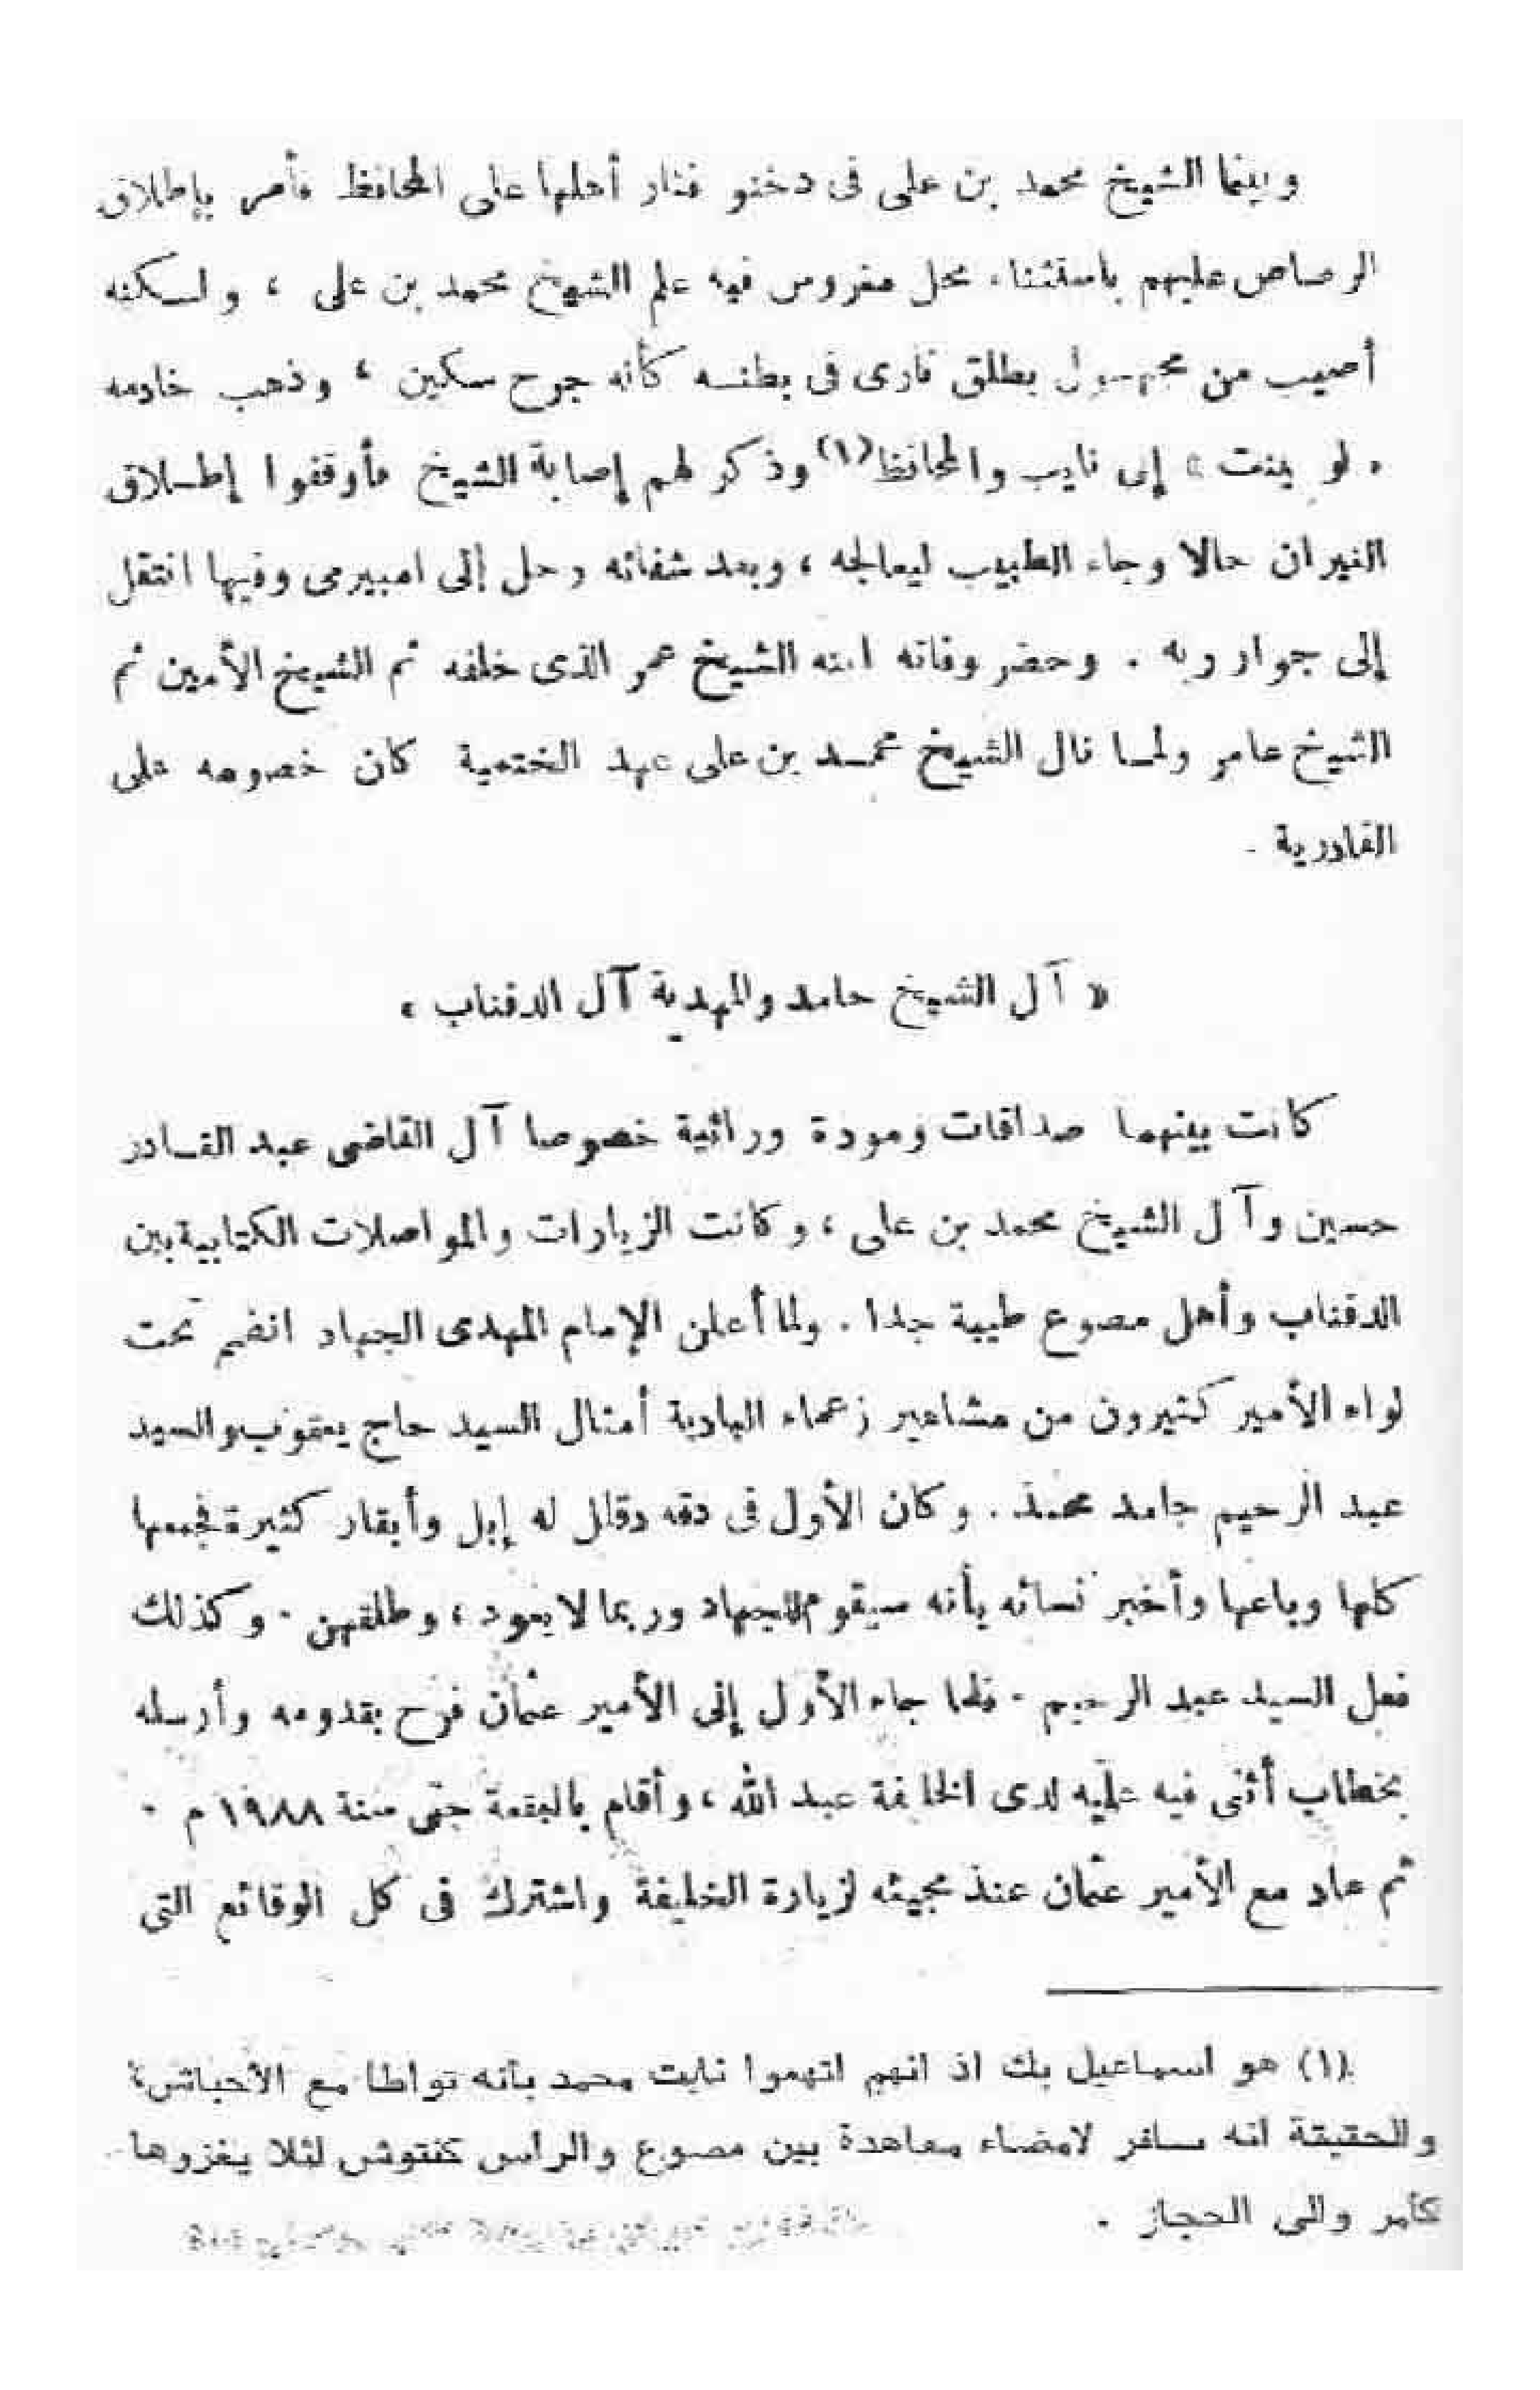 وبينما الشيخ محمد بن على فى دخنو فثار أهلها على المحافظ فأمر بإطلاق
الرصاص عليهم باستثناء محل مغروس فيه علم الشيخ محمد بن على ، ولكنه
أصيب من مجهول بطلق نارى فى بطنه كأنه جرح سكين ، وذهب خادمه
« لو ينت » إلى نايب والمحافظ (١) وذكر لهم إصابة الشيخ فأوقفوا إطلاق
النيران حالا وجاء الطبيب ليعالجه ، وبعد شفائه رحل إلى امبيرمى وفيها انتقل
إلى جوار ربه . وحضر وفاته ابنه الشيخ عمر الذى خلفه ثم الشيخ الأمين ثم
الشيخ عامر ولما نال الشيخ محمد بن على عهد الختمية كان خصومه على
القادرية .
« آل الشيخ حامد والمهدية آل الدقناب »
كانت بينهما صداقات ومودة وراثية خصوصا آل القاضى عبد القادر
حسين وآل الشيخ محمد بن على ، وكانت الزيارات والمواصلات الكتابية بين
الدقناب وأهل مصوع طيبة جدا . ولما أعلن الإمام المهدى الجهاد انضم تحت
لواء الأمير كثيرون من مشاهير زعماء البادية أمثال السيد حاج يعقوب والسيد
عبد الرحيم حامد محمد . وكان الأول فى دقه دقلل له إبل وأبقار كثيرة فجمعها
كلها وباعها وأخبر نسائه بأنه سيقوم للجهاد وربما لا يعود ، وطلقهن . وكذلك
فعل السيد عبد الرحيم . فلما جاء الأول إلى الأمير عثمان فرح بقدومه وأرسله
بخطاب أثنى فيه عليه لدى الخليفة عبد الله ، وأقام بالبقعة حتى سنة ١٩٨٨ م .
ثم عاد مع الأمير عثمان عند مجيئه لزيارة الخليفة واشترك فى كل الوقائع التى
(١) هو اسماعيل بك اذ انهم اتهموا نايت محمد بأنه تواطا مع الأحباش ؛
والحقيقة انه سافر لامضاء معاهدة بين مصوع والراس كنتوش لئلا يغزوها
كأمر والى الحجاز .